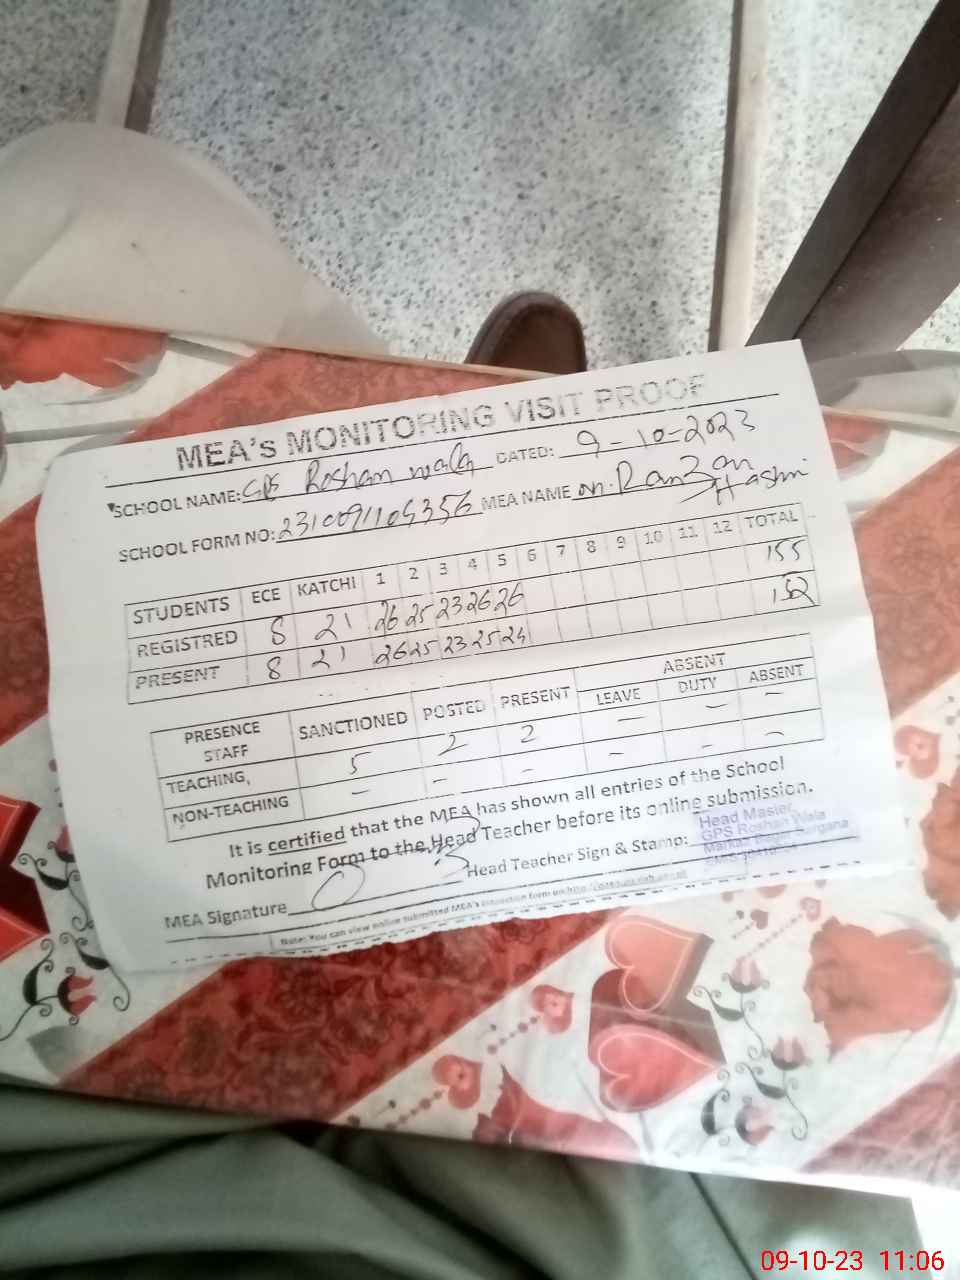 MEA's MONITORING VISIT PROOF
SCHOOL NAME: GPS Roshan wala DATED: 9-10-2023
SCHOOL FORM NO: MEA NAME M. Ramzan Hashmi
STUDENTS ECE KATCHI 1 2 3 4 5 6 7 8 9 10 11 12 TOTAL
REGISTRED 8 21 26 25 23 26 26 155
PRESENT 8 21 26 25 23 25 24 152
PRESENCE STAFF SANCTIONED POSTED PRESENT ABSENT
LEAVE DUTY ABSENT
TEACHING, 5 2 2 – – –
NON-TEACHING – – – – – –
It is certified that the MEA has shown all entries of the School
Monitoring Form to the Head Teacher before its online submission.
MEA Signature Head Teacher Sign & Stamp:
Head Master
GPS Roshan Wala
Note: You can view online submitted MEA's inspection form on
09-10-23 11:06